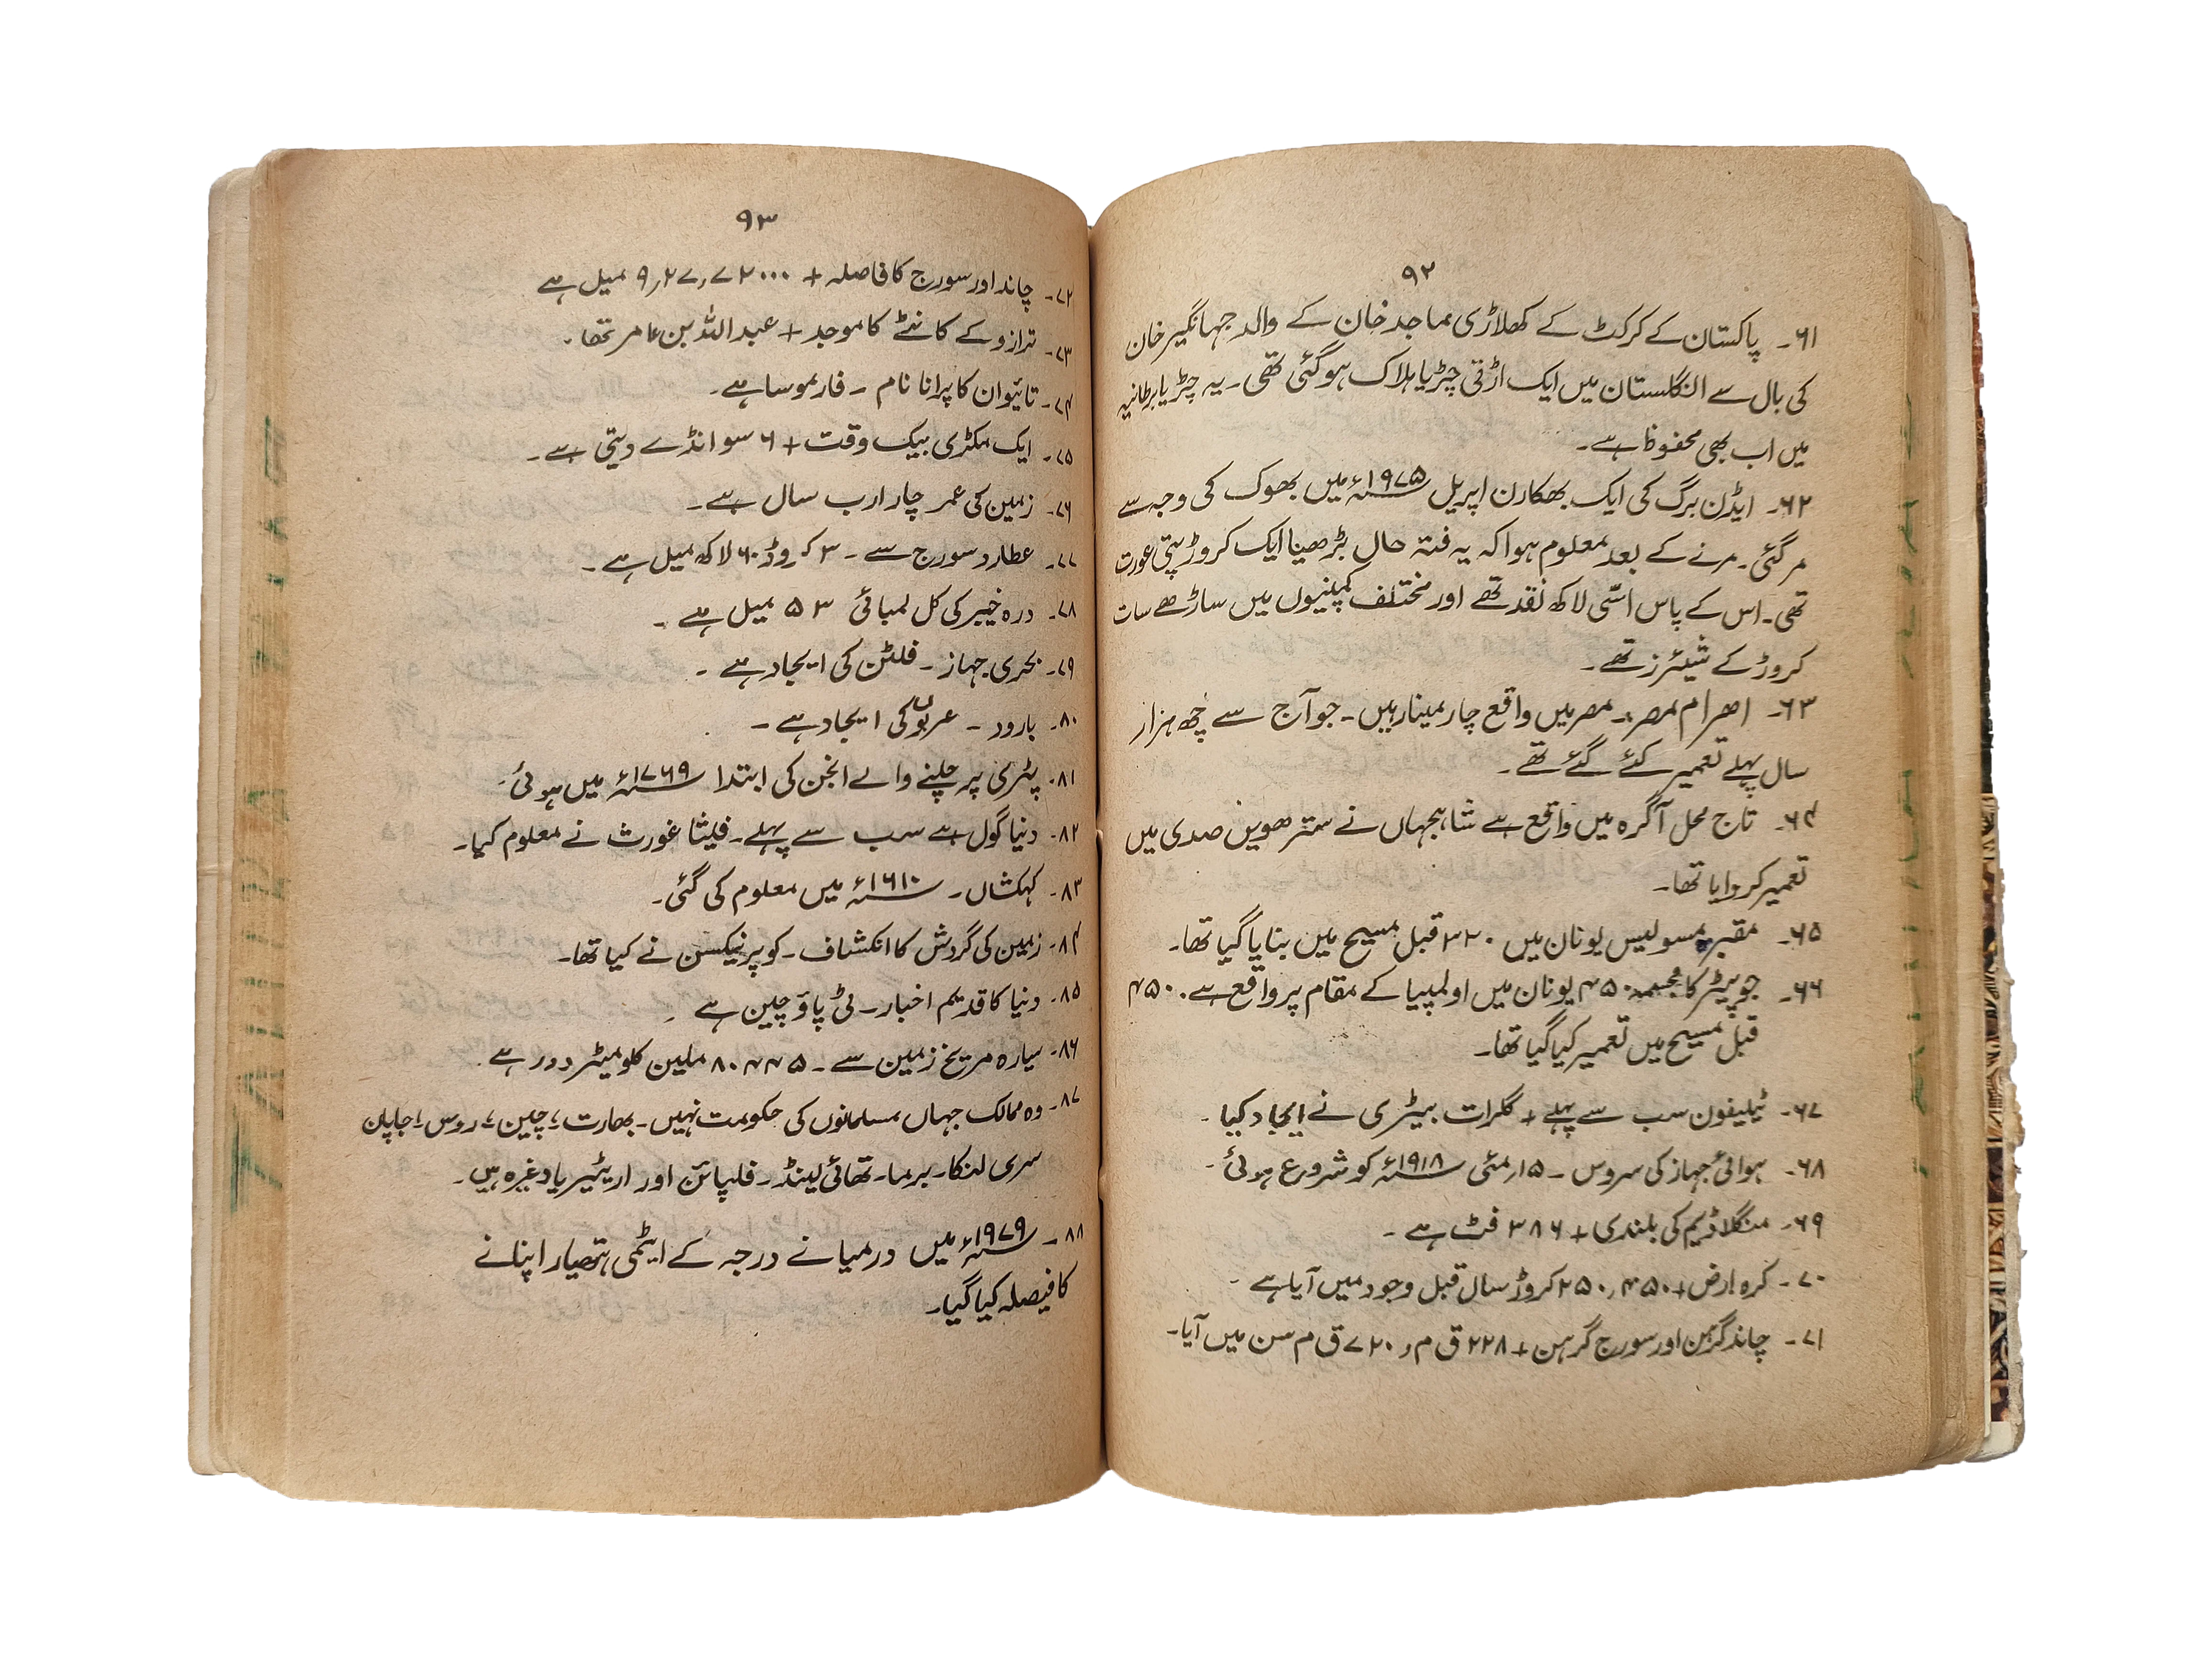 ۹۲
۶۱۔ پاکستان کے کرکٹ کے کھلاڑی ماجد خان کے والد جہانگیر خان
کی بال سے انگلستان میں ایک اڑتی چڑیا ہلاک ہو گئی تھی۔ یہ چڑیا برطانیہ
میں اب بھی محفوظ ہے۔
۶۲۔ ایڈن برگ کی ایک بھکارن اپریل ۱۹۷۵ء میں بھوک کی وجہ سے
مر گئی۔ مرنے کے بعد معلوم ہوا کہ یہ فتہ حال بڑھیا ایک کروڑ پتی عورت
تھی۔ اس کے پاس اسّی لاکھ نقد تھے اور مختلف کمپنیوں میں ساڑھے سات
کروڑ کے شیئرز تھے۔
۶۳۔ اھرام مصر۔ مصر میں واقع چار مینار ہیں۔ جو آج سے چھ ہزار
سال پہلے تعمیر کئے گئے تھے۔
۶۴۔ تاج محل آگرہ میں واقع ہے شاہجہاں نے سترھویں صدی میں
تعمیر کروایا تھا۔
۶۵۔ مقبرہ مسولیس یونان میں ۳۲۰ قبل مسیح میں بنایا گیا تھا۔
۶۶۔ جوپیٹر کا مجسمہ ۴۵۰ یونان میں اولمپیا کے مقام پر واقع ہے۔ ۴۵۰
قبل مسیح میں تعمیر کیا گیا تھا۔
۶۷۔ ٹیلیفون سب سے پہلے + کلرات بیٹری نے ایجاد کیا۔
۶۸۔ ہوائی جہاز کی سروس ۔ ۱۵؍مئی ۱۹۱۸ء کو شروع ہوئی۔
۶۹۔ منگلا ڈیم کی بلندی + ۳۸۶ فٹ ہے۔
۷۰۔ کرہ ارض + ۲۵۰٫۴۵۰ کروڑ سال قبل وجود میں آیا ہے۔
۷۱۔ چاند گرہن اور سورج گرہن + ۲۲۸ ق م، ۷۲۰ ق م سن میں آیا۔
۹۳
۷۲۔ چاند اور سورج کا فاصلہ + ۹٫۲۷٫۷۲۰۰۰ میل ہے
۷۳۔ ترازو کے کانٹے کا موجد + عبداللہ بن عامر تھا۔
۷۴۔ تائیوان کا پرانا نام ۔ فارموسا ہے۔
۷۵۔ ایک مکڑی بیک وقت + ۶ سو انڈے دیتی ہے۔
۷۶۔ زمین کی عمر چار ارب سال ہے۔
۷۷۔ عطارد سورج سے ۔ ۳ کروڑ ۶۰ لاکھ میل ہے۔
۷۸۔ درہ خیبر کی کل لمبائی ۵۳ میل ہے۔
۷۹۔ بحری جہاز ۔ فلٹن کی ایجاد ہے۔
۸۰۔ بارود ۔ عربوں کی ایجاد ہے۔
۸۱۔ پٹری پر چلنے والے انجن کی ابتدا ۱۷۶۹ء میں ہوئی۔
۸۲۔ دنیا گول ہے سب سے پہلے۔ فیثا غورث نے معلوم کیا۔
۸۳۔ کہکشاں۔ ۱۶۱۰ء میں معلوم کی گئی۔
۸۴۔ زمین کی گردش کا انکشاف۔ کوپرنیکسن نے کیا تھا۔
۸۵۔ دنیا کا قدیم اخبار۔ ٹی پاؤ چین ہے
۸۶۔ سیارہ مریخ زمین سے ۔ ۸۰۴۴۵ ملین کلومیٹر دور ہے
۸۷۔ وہ ممالک جہاں مسلمانوں کی حکومت نہیں۔ بھارت، چین، روس، جاپان
سری لنکا۔ برما۔ تھائی لینڈ۔ فلپائن اور اریٹیریا وغیرہ ہیں۔
۸۸۔ ۱۹۷۹ء میں درمیانے درجہ کے ایٹمی ہتھیار اپنانے
کا فیصلہ کیا گیا۔